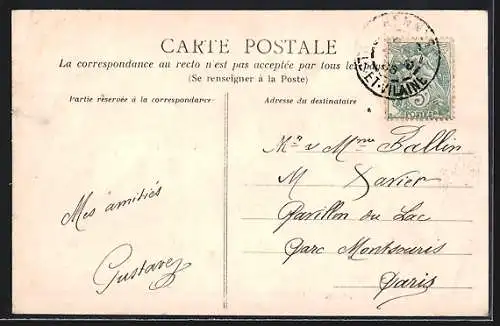 CARTE POSTALE
La correspondance au recto n'est pas acceptée par tous les pays
(Se renseigner à la Poste)
Partie réservée à la correspondance
Adresse du destinataire
RENNES
ET-VILAINE
5
POSTES
Mr & Mme Fallin
M Xavier
Pavillon du Lac
Parc Montsouris
Paris
Mes amitiés
Gustave